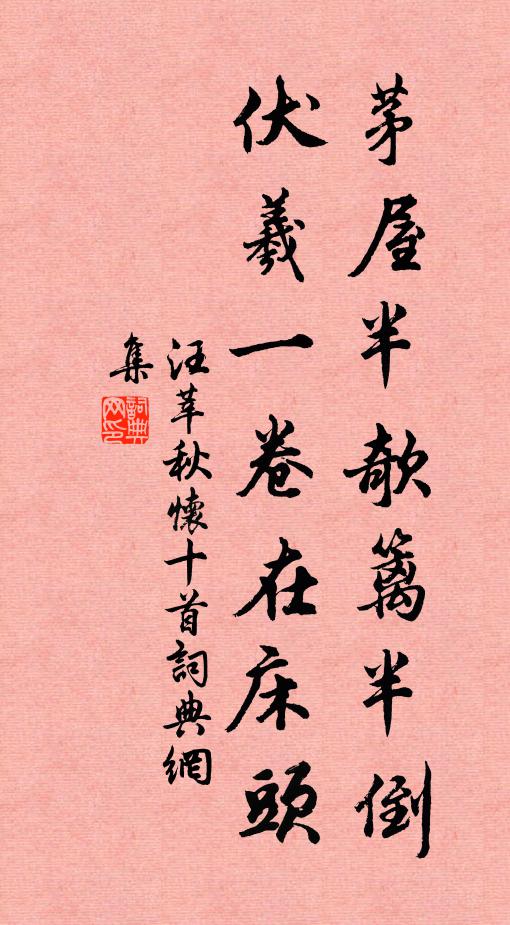 茅屋半欹篱半倒
伏羲一卷在床頭
汪莘秋懷十首詞典網
集
詞典
网印